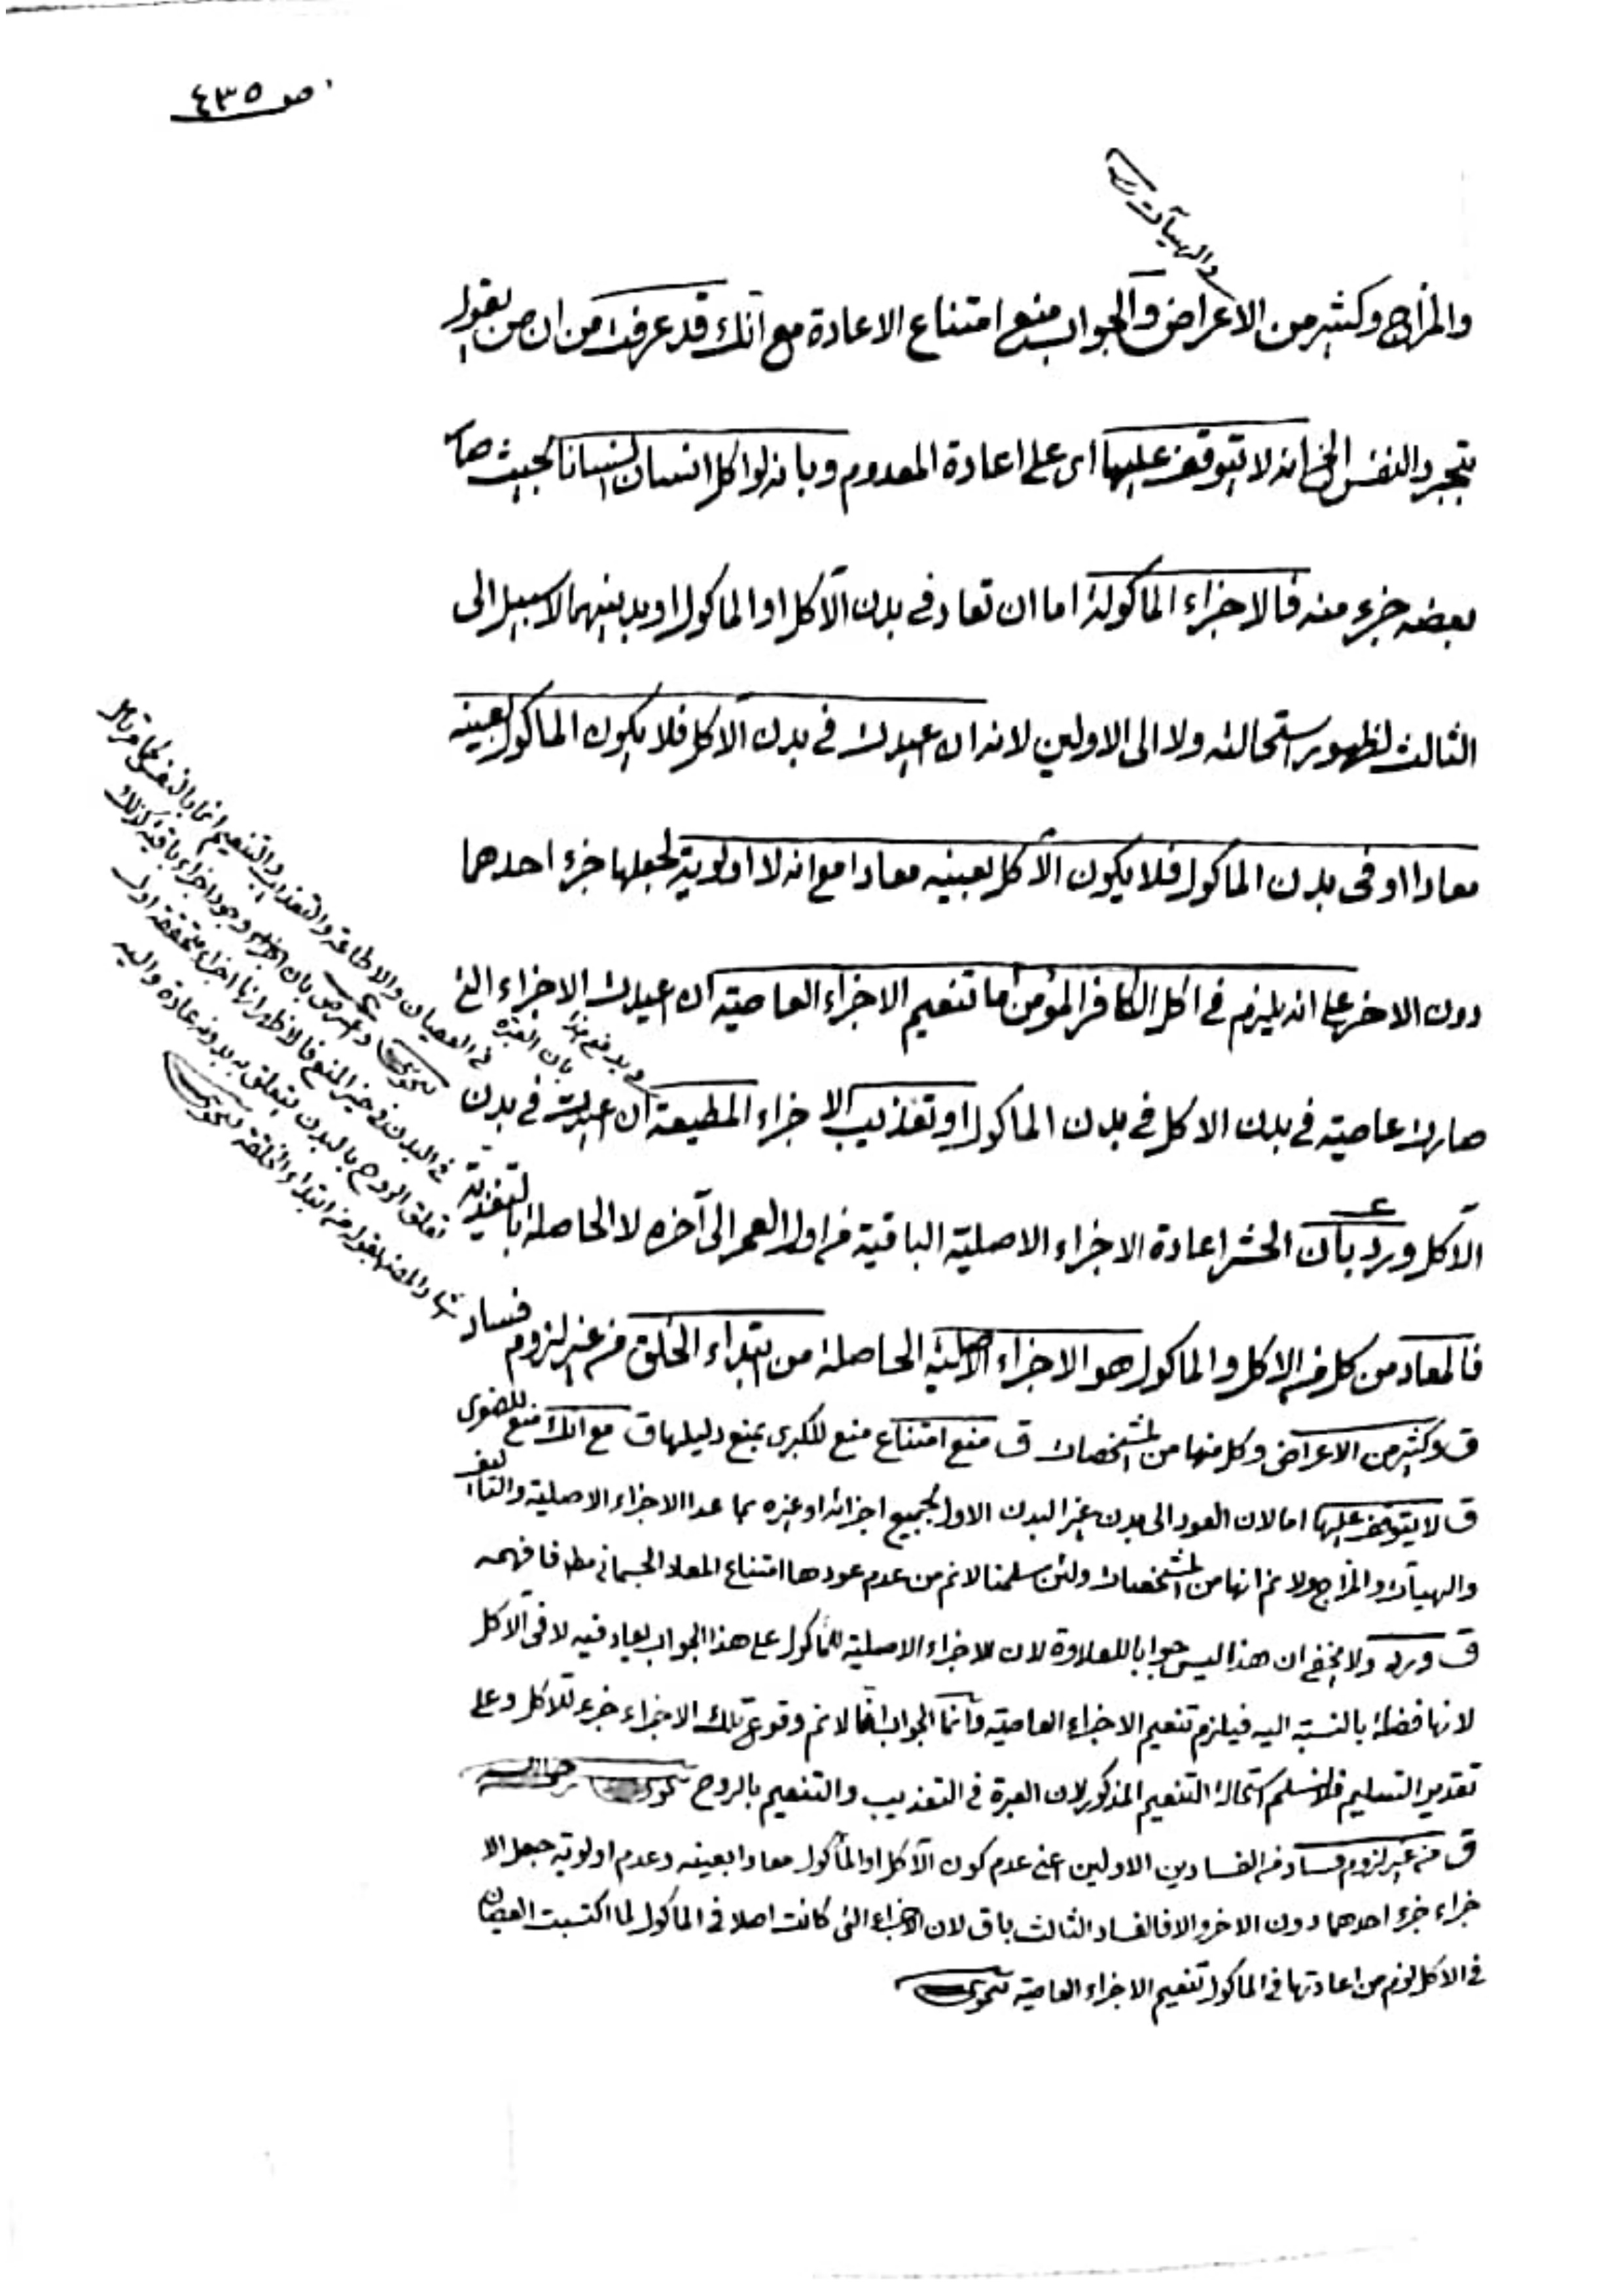 ص ٤٣٥
والهيآت
والمزاج وكثير من الاعراض والجواب منع امتناع الاعادة مع انك قد عرفت من ان من يقول
بتجرد النفس انه لا يتوقف عليها اى على اعادة المعدوم وبانه لو اكل انسان انسانا بحيث صار
بعضه جزء منه فالاجزاء الماكولة اما ان تعاد فى بدن الآكل او الماكول او بدنيهما لا سبيل الى
الثالث لظهور استحالته ولا الى الاولين لانه ان اعيدت فى بدن الآكل فلا يكون الماكول بعينه
معادا او فى بدن الماكول فلا يكون الآكل بعينه معادا مع انه لا اولوية لجعلها جزء احدهما
دون الاخر على انه يلزم فى اكل الكافر المؤمن اما تنعيم الاجزاء العاصية ان اعيدت الاجزاء التى
صارت عاصية فى بدن الاكل فى بدن الماكول او تعذيب الاجزاء المطيعة ان اعيدت فى بدن
الآكل ورد بان الحشر اعادة الاجزاء الاصلية الباقية من اول العمر الى آخره لا الحاصلة بالتغذية
فالمعاد من كل من الاكل والماكول هو الاجزاء الاصلية الحاصلة من ابتداء الخلق من غير لزوم فساد
ق وكثير من الاعراض وكل منها من المشخصات ق منع امتناع منع للكبرى بمنع دليلها ق مع انك منع للصغرى
ق لا يتوقف عليها اما لان العود الى بدن غير البدن الاول لجميع اجزائه او غيره بما عدا الاجزاء الاصلية والتاليف
والهيآت والمزاج ولا نم انها من المشخصات ولئن سلمنا لا نم من عدم عودها امتناع المعاد الجسمانى مط فافهمه
ق ورد ولا يخفى ان هذا ليس جوابا للعلاوة لان الاجزاء الاصلية للماكول على هذا الجواب يعاد فيه لا فى الآكل
لانها فضلة بالنسبة اليه فيلزم تنعيم الاجزاء العاصية وانما الجواب انا لا نم وقوع تلك الاجزاء جزء للاكل وعلى
تقدير التسليم فلا نسلم استحالة التنعيم المذكور لان العبرة فى التعذيب والتنعيم بالروح
ق من غير لزوم فساد من الفسادين الاولين اعنى عدم كون الآكل او المأكول معادا بعينه وعدم اولوية جعل الا
جزاء جزء احدهما دون الاخر والا فالفساد الثالث باق لان الاجزاء التى كانت اصلا فى الماكول لما اكتسبت العصيان
فى الاكل لزم من اعادتها فى الماكول تنعيم الاجزاء العاصية
ويدفع هذا بان العبرة
فى العصيان والاطاعة والتعذيب والتنعيم انما بالنفس
واعترض بان وجود اجزاء باقية كذلك
فى البدن فى حيز المنع
تعلق الروح بالبدن